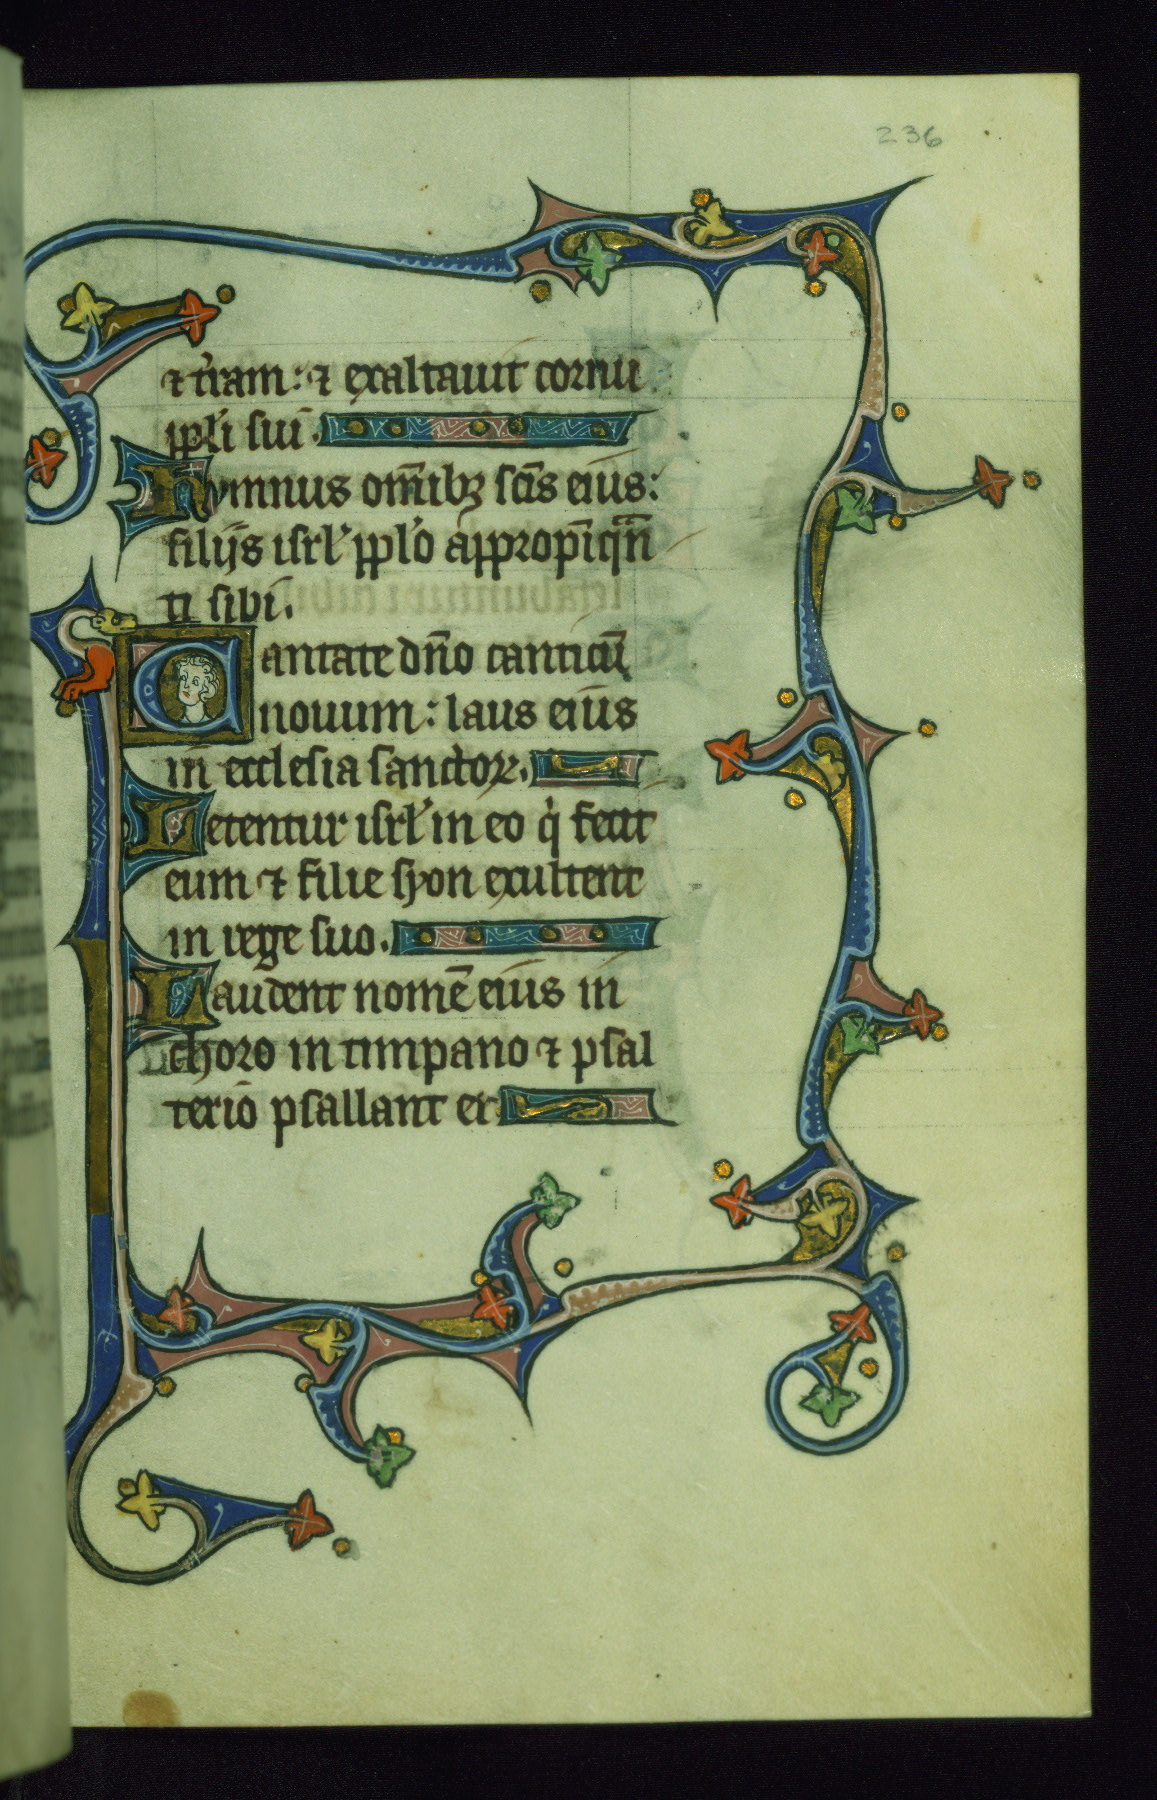 236
⁊ t̉ram: ⁊ exaltauit cornu
ppl̓i sui.
Hymnus om̄ibꝫ sc̄is eius:
filijs isrl̓ ppl̓o appropīqn̄
ti sibi.
Cantate dn̄o canticū
nouum: laus eius
in ecclesia sanctoꝝ.
Letentur isrl̓ in eo q̇ fecit
eum ⁊ filie syon exultent
in rege suo.
Laudent nomē eius in
choro in timpano ⁊ psal
terio psallant ei